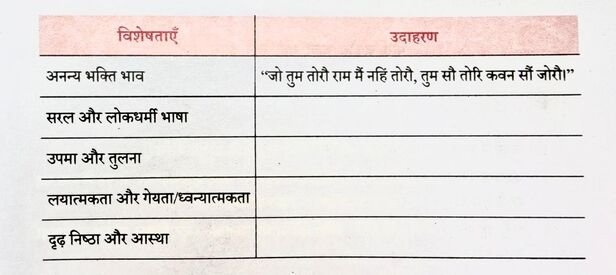 विशेषताएँ उदाहरण
अनन्य भक्ति भाव “जो तुम तोरौ राम मैं नहिं तोरौ, तुम सौ तोरि कवन सौं जोरौ।”
सरल और लोकधर्मी भाषा
उपमा और तुलना
लयात्मकता और गेयता/ध्वन्यात्मकता
दृढ़ निष्ठा और आस्था